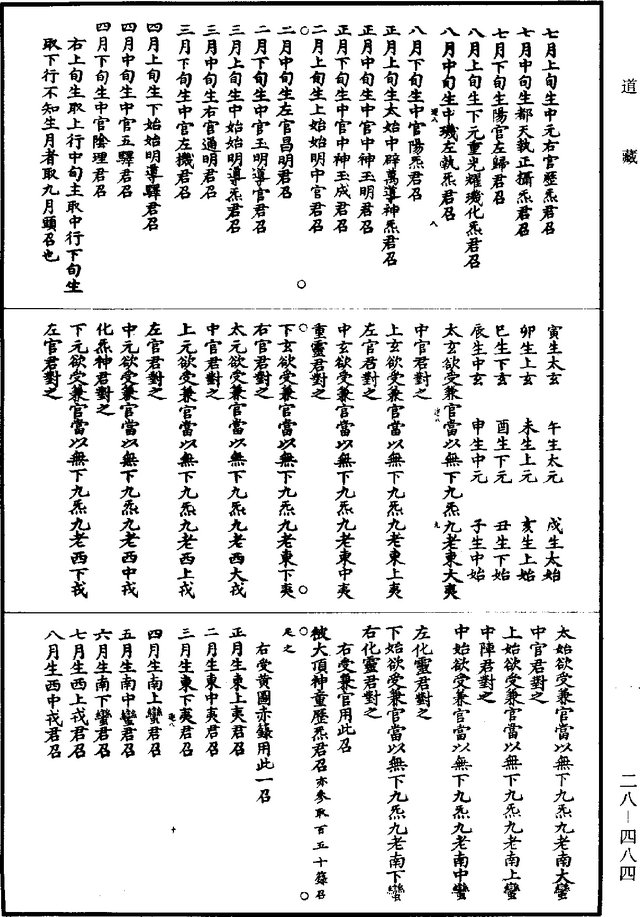 道藏
七月上旬生中元右官歷炁君召
七月中旬生都天執正攝炁君召
七月下旬生陽官左歸君召
八月上旬生下元重光耀璣化炁君召
八月中旬生中璣左執炁君召
八月下旬生中官陽炁君召
正月上旬生太始中辟萬導神炁君召
正月中旬生中官中神玉明君召
正月下旬生中官中神玉成君召
二月上旬生上始始明中官君召
二月中旬生左官昌明君召
二月下旬生中官玉明導官君召
三月上旬生中始始明導炁君召
三月中旬生右官通明君召
三月下旬生中官左機君召
四月上旬生下始始明導驛君召
四月中旬生中官五驛君召
四月下旬生中官陰理君召
右上旬生取上行中旬主取中行下旬生
取下行不知生月者取九月頭召也
寅生太玄 午生太元 戌生太始
卯生上玄 未生上元 亥生上始
巳生下玄 酉生下元 丑生下始
辰生中玄 申生中元 子生中始
太玄欲受兼官當以無下九炁九老東大夷
中官君對之
上玄欲受兼官當以無下九炁九老東上夷
左官君對之
中玄欲受兼官當以無下九炁九老東中夷
重靈君對之
下玄欲受兼官當以無下九炁九老東下夷
右官君對之
太元欲受兼官當以無下九炁九老西大戎
中官君對之
上元欲受兼官當以無下九炁九老西上戎
左官君對之
中元欲受兼官當以無下九炁九老西中戎
化炁神君對之
下元欲受兼官當以無下九炁九老西下戎
左官君對之
太始欲受兼官當以無下九炁九老南大蠻
中官君對之
上始欲受兼官當以無下九炁九老南上蠻
中陣君對之
中始欲受兼官當以無下九炁九老南中蠻
左化靈君對之
下始欲受兼官當以無下九炁九老南下蠻
右化靈君對之
右受兼官用此召
被大頂神童歷炁君召亦參取百五十籙召
是之
右受黄圖赤籙用此一召
正月生東上夷君召
二月生東中夷君召
三月生東下夷君召
四月生南上蠻君召
五月生南中蠻君召
六月生南下蠻君召
七月生西上戎君召
八月生西中戎君召
二八—四八四